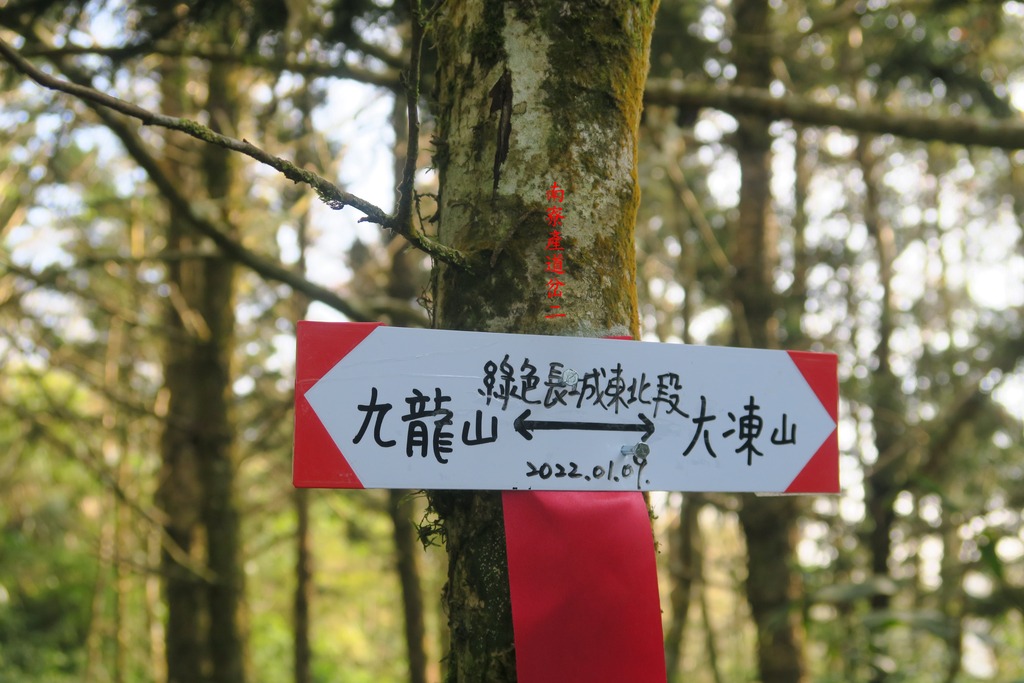 南寮產道岔二
綠色長城東北段
九龍山 ⟷ 大凍山
2022.01.09.